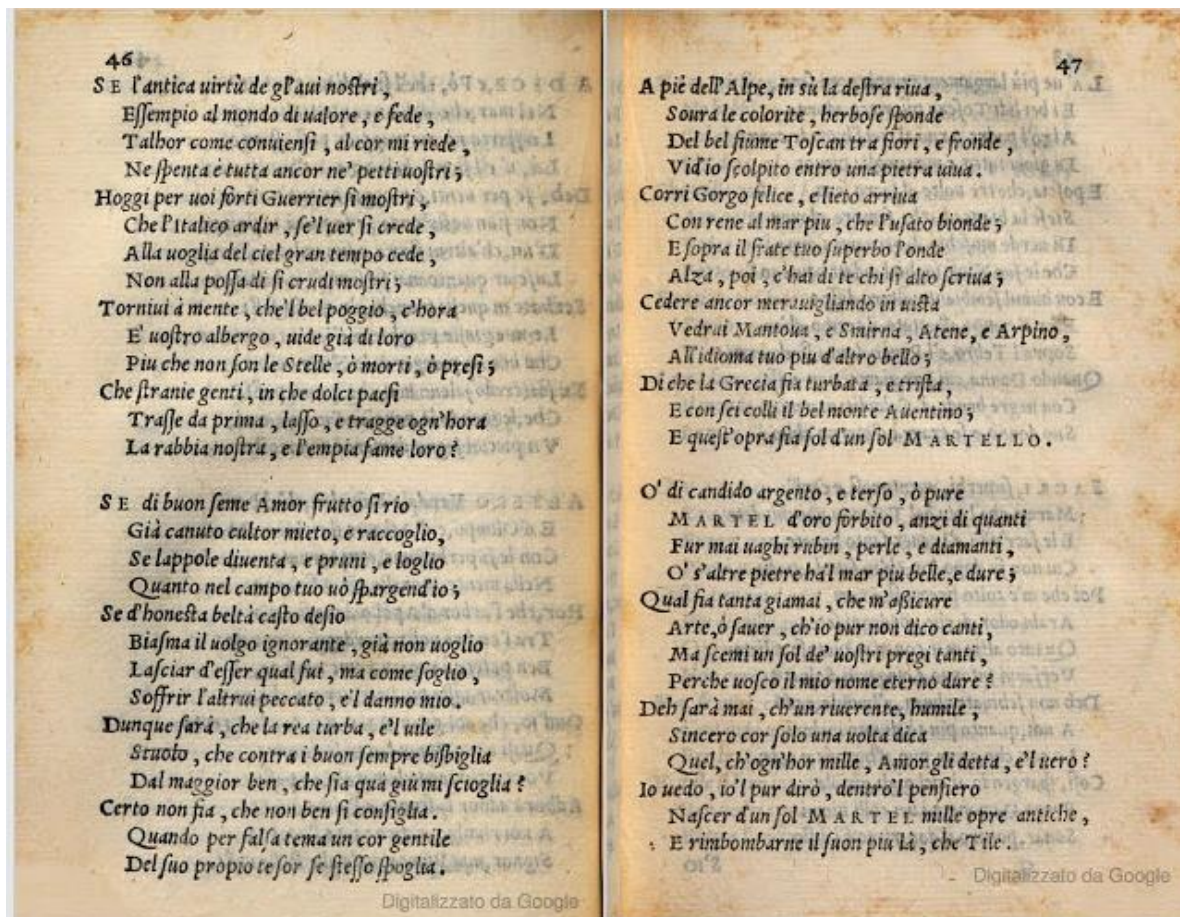 46
SE l'antica uirtù de gl'aui nostri,
Essempio al mondo di ualore, e fede,
Talhor come conuiensi, al cor mi riede,
Ne spenta è tutta ancor ne' petti uostri;
Hoggi per uoi forti Guerrier si mostri,
Che l'Italico ardir, se'l uer si crede,
Alla uoglia del ciel gran tempo cede,
Non alla possa di si crudi mostri;
Torniui à mente, che'l bel poggio, c'hora
E' uostro albergo, uide già di loro
Piu che non son le Stelle, ò morti, ò presi;
Che stranie genti, in che dolci paesi
Trasse da prima, lasso, e tragge ogn'hora
La rabbia nostra, e l'empia fame loro?
SE di buon seme Amor frutto si rio
Già canuto cultor mieto, e raccoglio,
Se lappole diuenta, e pruni, e loglio
Quanto nel campo tuo uò spargend'io;
Se d'honesta beltà casto desio
Biasma il uolgo ignorante, già non uoglio
Lasciar d'esser qual fui, ma come soglio,
Soffrir l'altrui peccato, e'l danno mio.
Dunque sarà, che la rea turba, e'l uile
Stuolo, che contra i buon sempre bisbiglia
Dal maggior ben, che sia qua giù mi scioglia?
Certo non fia, che non ben si consiglia.
Quando per falsa tema un cor gentile
Del suo propio tesor se stesso spoglia.
Digitalizzato da Google
47
A piè dell'Alpe, in sù la destra riua,
Soura le colorite, herbose sponde
Del bel fiume Toscan tra fiori, e fronde,
Vid'io scolpito entro una pietra uiua.
Corri Gorgo felice, e lieto arriua
Con rene al mar piu, che l'usato bionde;
E sopra il frate tuo superbo l'onde
Alza, poi, c'hai di te chi sì alto scriua;
Cedere ancor merauigliando in uista
Vedrai Mantoua, e Smirna, Atene, e Arpino,
All'idioma tuo piu d'altro bello;
Di che la Grecia fia turbata, e trista,
E con sei colli il bel monte Auentino;
E quest'opra fia sol d'un sol MARTELLO.
O' di candido argento, e terso, ò pure
MARTEL d'oro forbito, anzi di quanti
Fur mai uaghi rubin, perle, e diamanti,
O' s'altre pietre ha'l mar piu belle, e dure;
Qual fia tanta giamai, che m'assicure
Arte, ò sauer, ch'io pur non dico canti,
Ma scemi un sol de' uostri pregi tanti,
Perche uosco il mio nome eterno dure?
Deh sarà mai, ch'un riuerente, humile,
Sincero cor solo una uolta dica
Quel, ch'ogn'hor mille, Amor gli detta, e'l uero?
Io uedo, io'l pur dirò, dentro'l pensiero
Nascer d'un sol MARTEL mille opre antiche,
E rimbombarne il suon piu là, che Tile.
Digitalizzato da Google